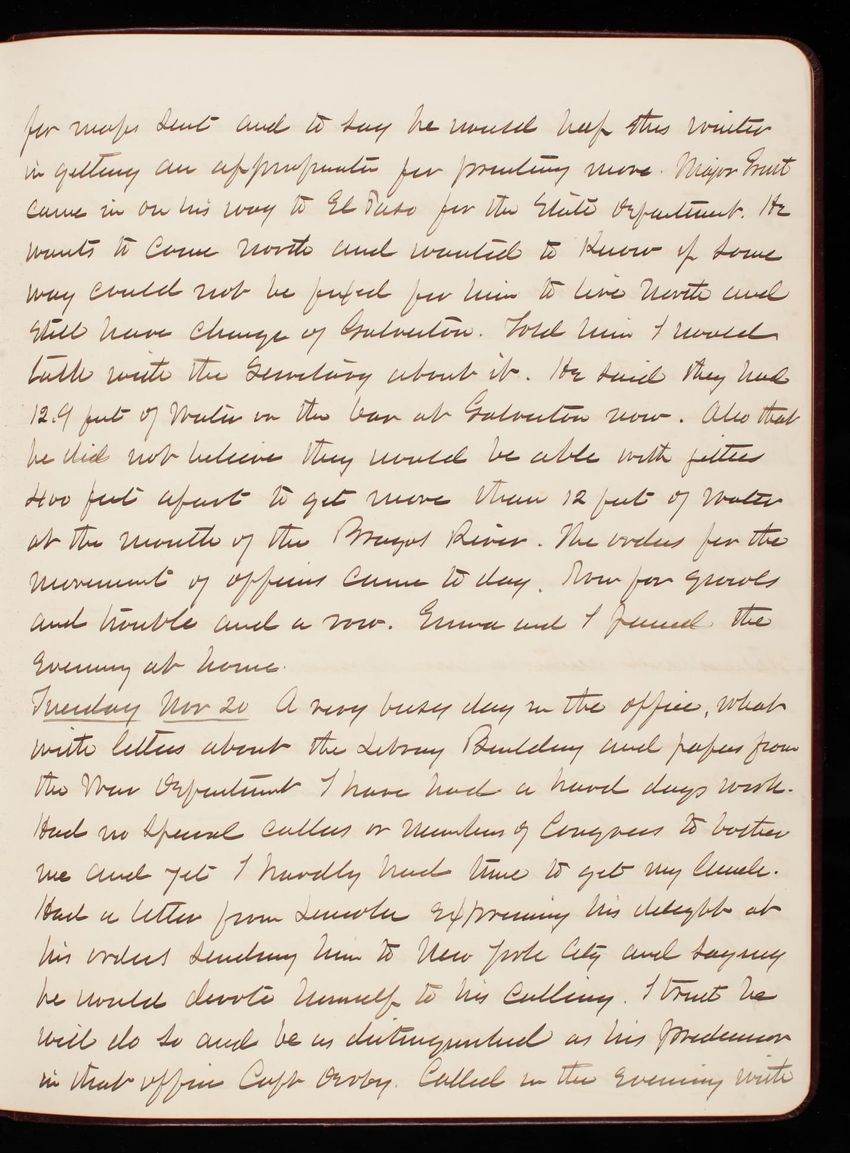 for maps sent and to say he would help this winter
in getting an appropriation for printing more. Major Ernst
came in on his way to El Paso for the State Department. He
wants to come north and wanted to know if some
way could not be fixed for him to live North and
still have charge of Galveston. Told him I would
talk with the Secretary about it. He said they had
12.9 feet of water on the bar at Galveston now. Also that
he did not believe they would be able with jetties
400 feet apart to get more than 12 feet of water
at the mouth of the Brazos River. The orders for the
movement of officers came to day. Now for growls
and trouble and a row. Emma and I passed the
evening at home.
Tuesday Nov 20 A very busy day in the office, what
with letters about the Library Building and papers from
the War Department I have had a hard days work.
Had no special callers or members of Congress to bother
me and yet I hardly had time to get my lunch.
Had a letter from Lincoln expressing his delight at
his orders sending him to New York City and saying
he would devote himself to his calling. I trust he
will do so and be as distinguished as his predecessor
in that office Capt Derby. Called in the evening with